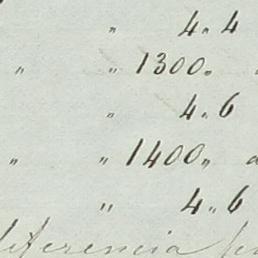 " 4 " 4
" " 1300 "
" 4 " 6
" " 1400 " a
" 4 " 6
diferencia